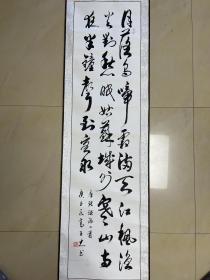 月落烏啼霜滿天江楓漁
火對愁眠姑蘇城外寒山寺
夜半鐘聲到客船
唐張繼詩一首